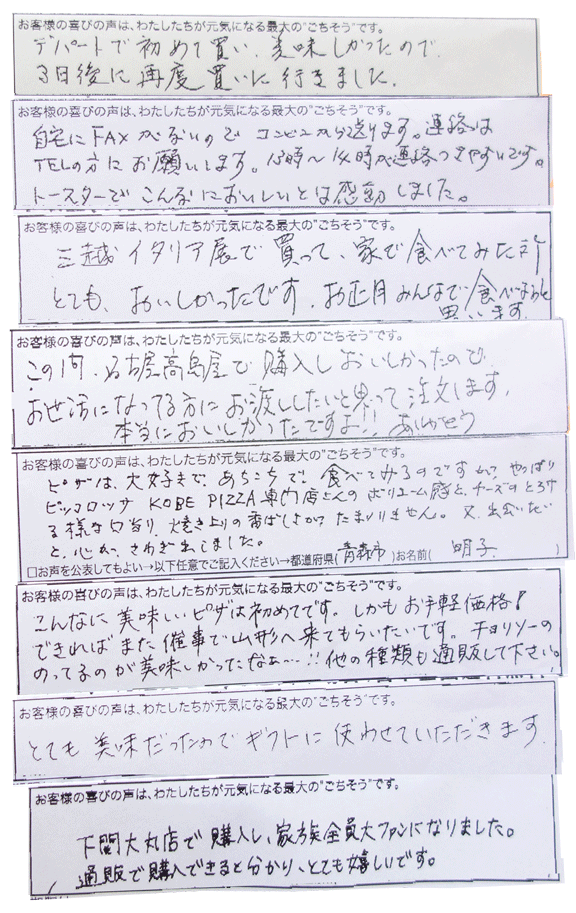 お客様の喜びの声は、わたしたちが元気になる最大の"ごちそう"です。
デパートで初めて買い、美味しかったので
3日後に再度買いに行きました。
お客様の喜びの声は、わたしたちが元気になる最大の"ごちそう"です。
自宅にFAXがないのでコンビニから送ります。連絡は
TELの方にお願いします。13時〜14時が連絡つきやすいです。
トースターでこんなにおいしいとは感動しました。
お客様の喜びの声は、わたしたちが元気になる最大の"ごちそう"です。
三越イタリア展で買って、家で食べてみた所
とても、おいしかったです。お正月みんなで食べようと
思います。
お客様の喜びの声は、わたしたちが元気になる最大の"ごちそう"です。
この間、名古屋高島屋で購入しおいしかったので
お世話になってる方にお渡ししたいと思って注文します。
本当においしかったですよ!! ありがとう
お客様の喜びの声は、わたしたちが元気になる最大の"ごちそう"です。
ピザは、大好きで、あちこちで、食べてみるのですが、やっぱり
ピッコロッサ KOBE PIZZA専門店さんのボリューム感と、チーズのとろけ
る様な口当り、焼き上りの香ばしさがたまりません。又、出会いたい
と、心が、さわぎ出しました。
□お声を公表してもよい→以下任意でご記入ください→都道府県(青森市)お名前( 明子 )
お客様の喜びの声は、わたしたちが元気になる最大の"ごちそう"です。
こんなに美味しいピザは初めてです。しかもお手軽価格!
できればまた催事で山形へ来てもらいたいです。チョリソーの
のってるのが美味しかったなぁ…!! 他の種類も通販して下さい。
お客様の喜びの声は、わたしたちが元気になる最大の"ごちそう"です。
とても美味だったのでギフトに使わせていただきます。
お客様の喜びの声は、わたしたちが元気になる最大の"ごちそう"です。
下関大丸店で購入し、家族全員大ファンになりました。
通販で購入できると分かり、とても嬉しいです。